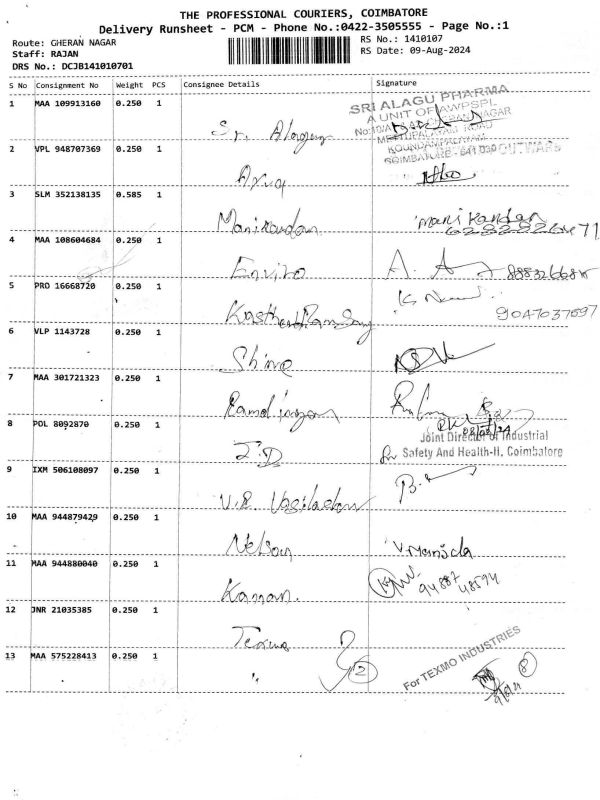 THE PROFESSIONAL COURIERS, COIMBATORE
Delivery Runsheet - PCM - Phone No.:0422-3505555 - Page No.:1
Route: GHERAN NAGAR
RS No.: 1410107
Staff: RAJAN
RS Date: 09-Aug-2024
DRS No.: DCJB141010701
S No Consignment No Weight PCS Consignee Details Signature
1 MAA 109913160 0.250 1
SRI ALAGU PHARMA
A UNIT OF AWPSPL
METTUPALAYAM ROAD
KOUNDAMPALAYAM
COIMBATORE - 641 030
Sri Alagu
2 VPL 948707369 0.250 1
3 SLM 352138135 0.585 1
Manikandan manikandan
6282826471
4 MAA 108604684 0.250 1
Enviro A. A
5 PRO 16668720 0.250 1
9047037697
6 VLP 1143728 0.250 1
Shine
7 MAA 301721323 0.250 1
8 POL 8092870 0.250 1
Joint Director of Industrial
Safety And Health-II, Coimbatore
J.D
9 IXM 506108097 0.250 1
10 MAA 944879429 0.250 1
Nelson
11 MAA 944880040 0.250 1
94887 48594
Kannan.
12 JNR 21035385 0.250 1
Texmo
13 MAA 575228413 0.250 1
For TEXMO INDUSTRIES
" 2
8